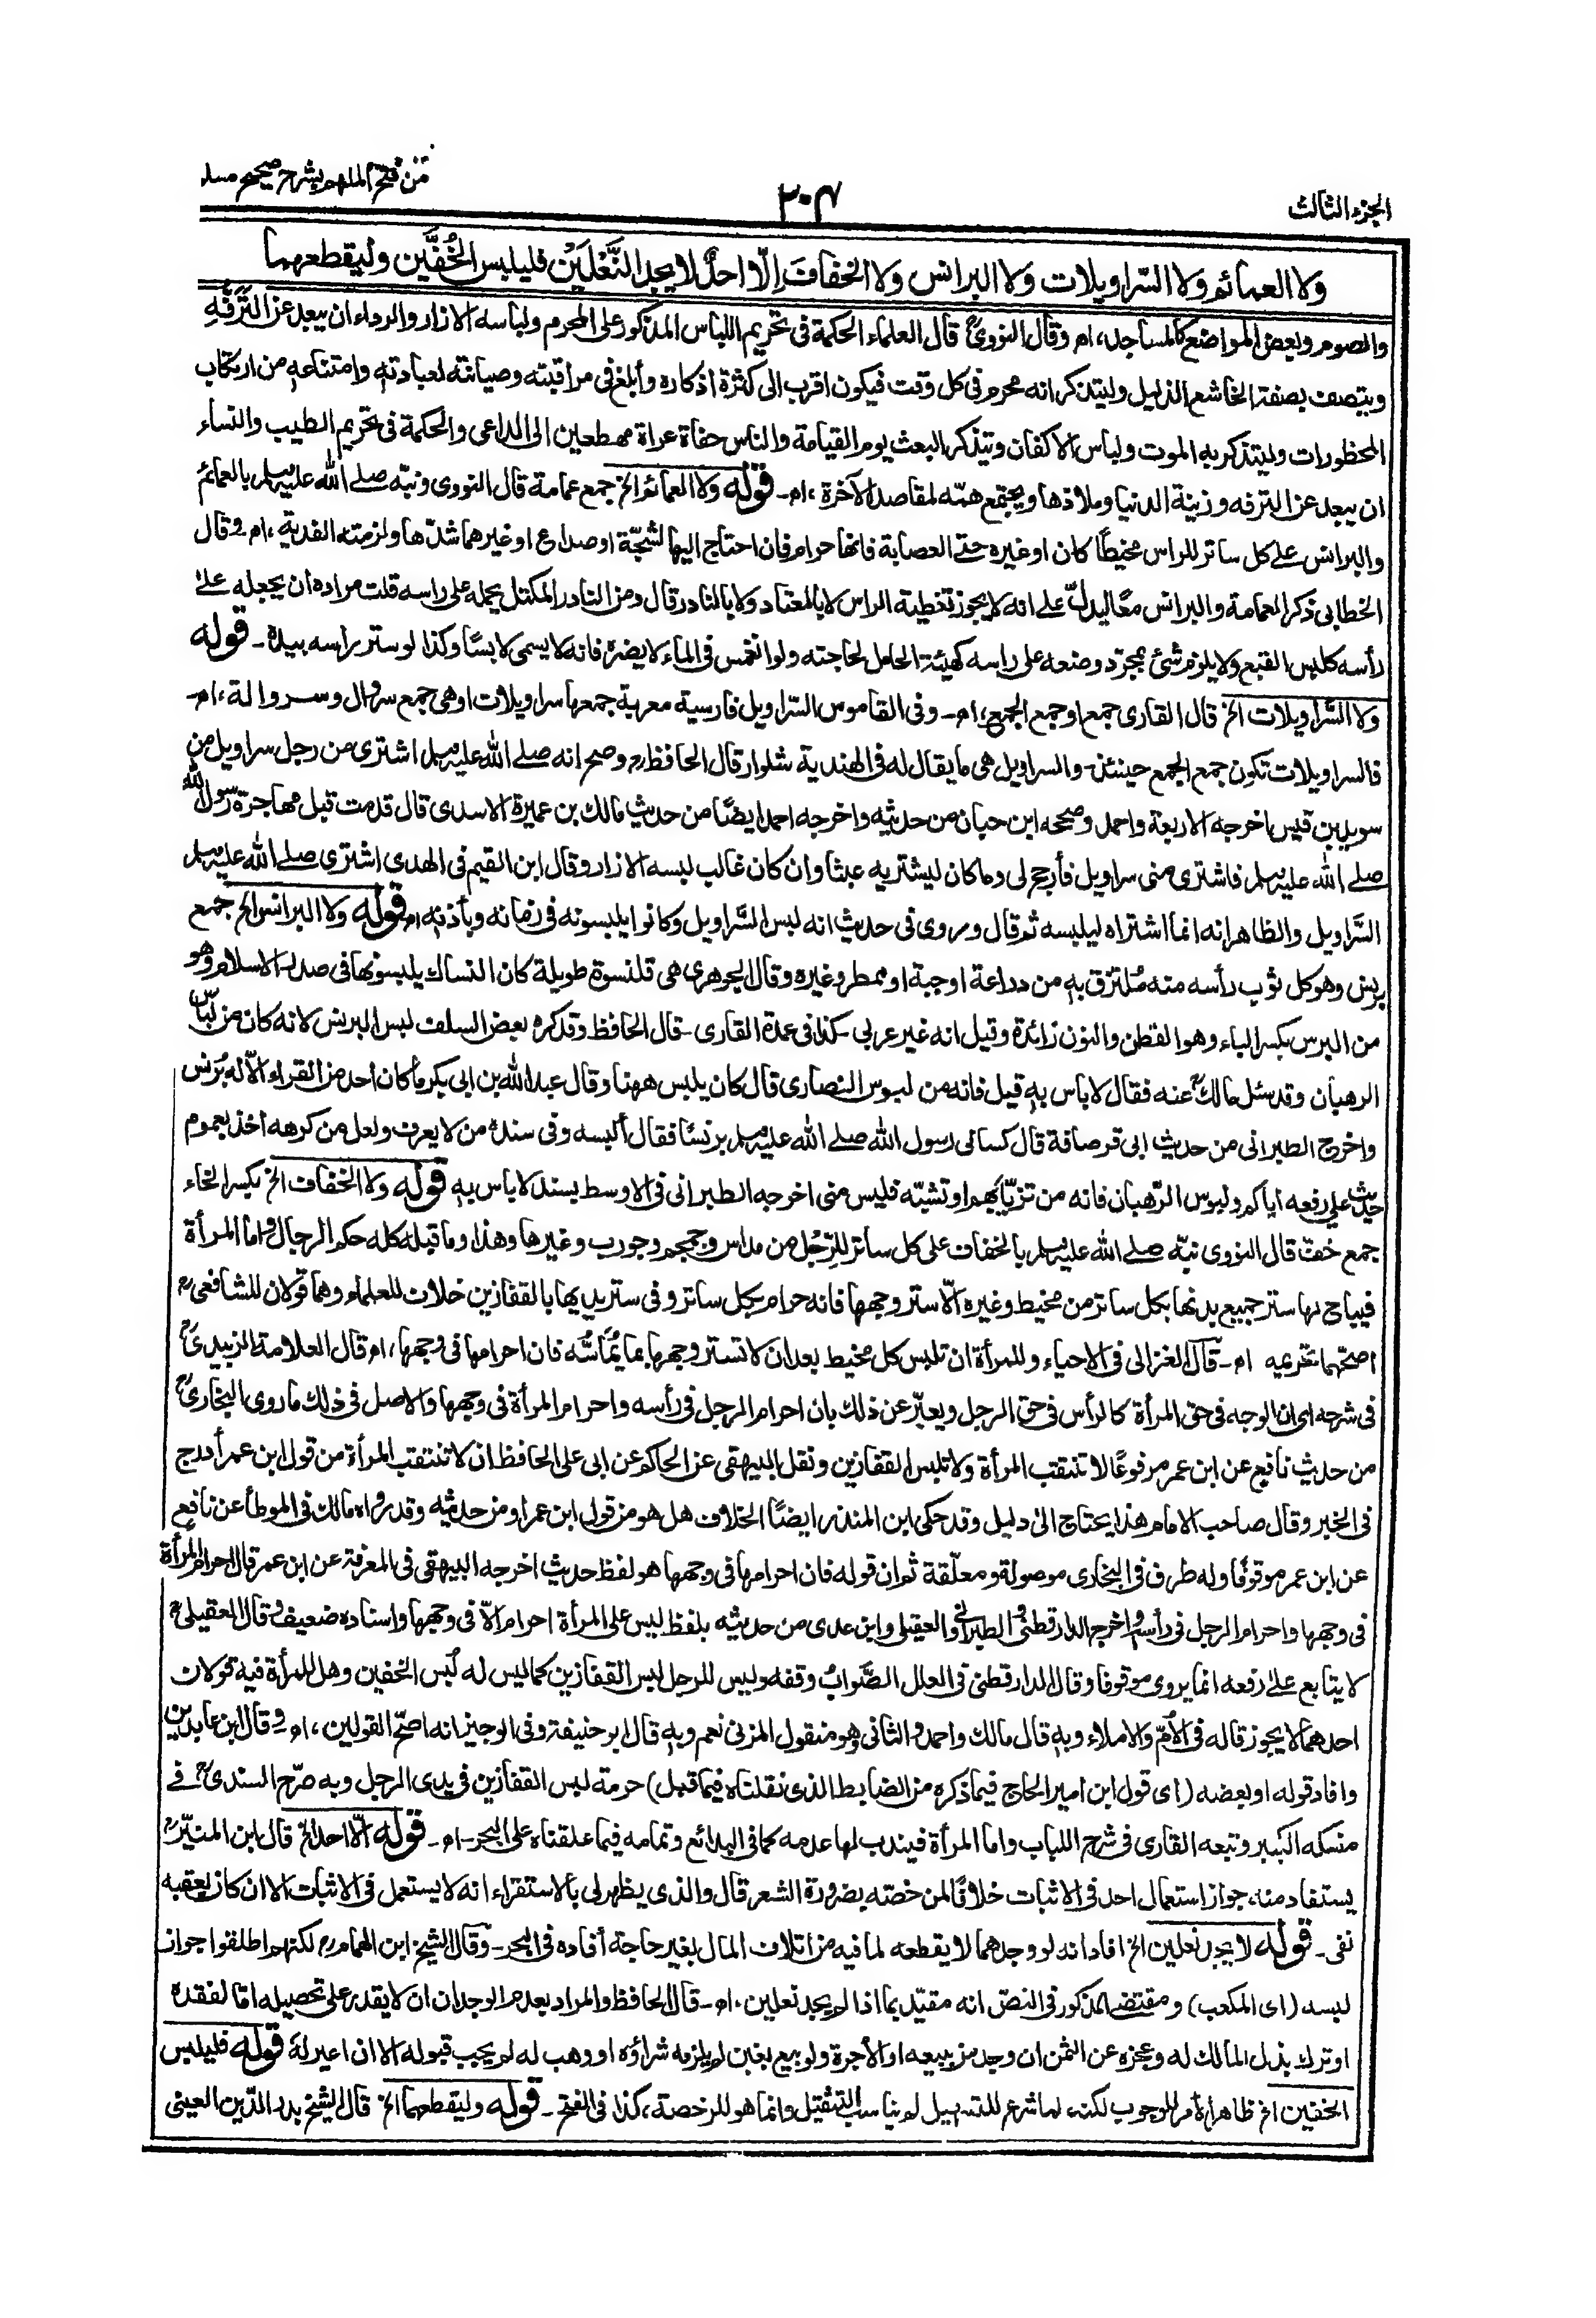 الجزء الثالث
٣٠٤
من فتح الملهم بشرح صحيح مسلم
ولا العمائم ولا السّراويلات ولا البرانس ولا الخفاف إلّا احدٌ لا يجد النَّعْلَيْن فليلبس الخُفَّين وليقطعهما
والصوم وبعض المواضع كالمساجد، اه وقال النوویؒ قال العلماء الحكمة فى تحريم اللباس المذكور على المحرم ولباسه الازار والرداء ان يبعد عن التَرَفُّهِ
ويتصف بصفة الخاشع الذليل وليتذكر انه محرم فى كل وقت فيكون اقرب الى كثرة اذكاره وأبلغ فى مراقبته وصيانته لعبادته وامتناعه من ارتكاب
المحظورات وليتذكر به الموت ولباس الاكفان ويتذكر البعث يوم القيامة والناس حفاة عراة مهطعين الى الداعى والحكمة فى تحريم الطيب والنساء
ان يبعد عن الترفه وزينة الدنيا وملاذها ويجتمع همّه لمقاصد الآخرة، اه۔ قوله ولا العمائم الخ جمع عمامة قال النووى ونبّه صلے الله عليه وسلم بالعمائم
والبرانس علے كل ساتر للراس مخيطًا كان او غيره حتے العصابة فانها حرام فان احتاج اليها لشجّة او صداع او غيرهما شدّها ولزمته الفدية، اه۔ وقال
الخطابى ذكر العمامة والبرانس معًا ليدلّ علے انه لا يجوز تغطية الراس لا بالمعتاد ولا بالنادر قال ومن النادر المكتل يحمله على راسه قلت مراده ان يجعله علے
رأسه كلبس القبع ولا يلزم شئ بمجرّد وضعه على راسه كهيئة الحامل لحاجته ولو انغمس فى الماء لا يضره فانه لا يسمى لابسًا وكذا لو ستر راسه بيده۔ قوله
ولا السّراويلات الخ قال القارى جمع او جمع الجمع، اه۔ وفى القاموس السّراويل فارسية معربة جمعها سراويلات او هى جمع سروال وسروالة، اه۔
فالسراويلات تكون جمع الجمع حينئذ۔ والسراويل هى ما يقال له فى الهندية شلوار قال الحافظؒ وصح انه صلے الله عليه وسلم اشترى من رجل سراويل من
سويد بن قيس اخرجه الاربعة واحمد وصححه ابن حبان من حديثه واخرجه احمد ايضًا من حديث مالك بن عميرة الاسدى قال قدمت قبل مهاجرة رسول الله
صلے الله عليه وسلم فاشترى منى سراويل فأرجح لى وما كان ليشتريه عبثا وان كان غالب لبسه الازار وقال ابن القيم فى الهدى اشترى صلے الله عليه وسلم
السَّراويل والظاهر انه انما اشتراه ليلبسه ثم قال وروى فى حديث انه لبس السَّراويل وكانوا يلبسونه فى زمانه وبأذنه اه قوله ولا البرانس الخ جمع
برنس وهو كل ثوب رأسه منه مُلتزق به من دراعة او جبة او ممطر وغيره وقال الجوهرى هى قلنسوة طويلة كان النساك يلبسونها فى صدر الاسلام وهو
من البرس بكسر الباء وهو القطن والنون زائدة وقيل انه غير عربى۔ كذا فى عمدة القارى۔ قال الحافظ وقد كره بعض السلف لبس البرنس لانه كان من لباس
الرهبان وقد سئل مالكؒ عنه فقال لا باس به قيل فانه من لبوس النصارى قال كان يلبس ههنا وقال عبد الله بن ابى بكر ما كان احد من القراء الّا له بُرنس
واخرج الطبرانى من حديث ابى قرصافة قال كسانى رسول الله صلے الله عليه وسلم برنسًا فقال ألبسه وفى سنده من لا يعرف ولعل من كرهه اخذ بعموم
حديث على رفعه اياكم ولبوس الرّهبان فانه من تزيّا بهم او تشبّه فليس منى اخرجه الطبرانى فى الاوسط بسند لا باس به قوله ولا الخفاف الخ بكسر الخاء
جمع خفّ قال النووى نبّه صلے الله عليه وسلم بالخفاف على كل ساتر للرِّجْل من مداس وجمجم وجورب وغيرها وهذا وما قبله كله حكم الرجال واما المرأة
فيباح لها ستر جميع بدنها بكل ساتر من مخيط وغيره الّا ستر وجهها فانه حرام بكل ساتر وفى ستر يديها بالقفازين خلاف للعلماء وهما قولان للشافعىؒ
اصحّهما تحريمه اه۔ قال الغزالى فى الاحياء وللمرأة ان تلبس كل مخيط بعد ان لا تستر وجهها بما يُمَاسُّه فان احرامها فى وجهها، اه قال العلامة الزبيدىؒ
فى شرحه اى ان الوجه فى حق المرأة كالرأس فى حق الرجل ويعبّر عن ذلك بان احرام الرجل فى رأسه واحرام المرأة فى وجهها والاصل فى ذلك ما روى البخارىؒ
من حديث نافع عن ابن عمر مرفوعًا لا تنتقب المرأة ولا تلبس القفازين ونقل البيهقى عن الحاكم عن ابى على الحافظ ان لا تنتقب المرأة من قول ابن عمر أدرج
فى الخبر وقال صاحب الامام هذا يحتاج الى دليل وقد حكى ابن المنذر ايضًا الخلاف هل هو من قول ابن عمر او من حديثه وقد رواه مالك فى الموطأ عن نافع
عن ابن عمر موقوفًا وله طرف فى البخارى موصولة ومعلّقة ثم ان قوله فان احرامها فى وجهها هو لفظ حديث اخرجه البيهقى فى المعرفة عن ابن عمر قال احرام المرأة
فى وجهها واحرام الرجل فى رأسه واخرجه الدارقطنى والطبرانى والعقيلى وابن عدى من حديثه بلفظ ليس على المرأة احرام الّا فى وجهها واسناده ضعيف وقال العقيلىؒ
لا يتابع علےٰ رفعه انما يروى موقوفا وقال الدارقطنى فى العلل الصَّوابُ وقفه وليس للرجل لبس القفازين كما ليس له لُبس الخفين وهل للمرأة فيه قولان
احدهما لا يجوز قاله فى الأمّ والاملاء وبه قال مالك واحمد والثانى وهو منقول المزنى نعم وبه قال ابو حنيفة وفى الوجيز انه اصحّ القولين، اه وقال ابن عابدين
وافاد قوله او بعضه (اى قول ابن امير الحاج فيما ذكره من الضابط الذى نقلناه فيما قبل) حرمة لبس القفازين فى يدى الرجل وبه صرّح السندىؒ فے
منسكه الكبير وتبعه القارى فى شرح اللباب واما المرأة فيندب لها عدمه كما فى البدائع وتمامه فيما علقناه على البحر۔ اه۔ قوله الّا احد الخ قال ابن المنيّرؒ
يستفاد منه، جواز استعمال احد فى الاثبات خلافًا لمن خصّه بضرورة الشعر قال والذى يظهر لى بالاستقراء انه لا يستعمل فى الاثبات الا ان كان يعقبه
نفى۔ قوله لا يجد نعلين الخ افاد انه لو وجدهما لا يقطعه لما فيه من اتلاف المال بغير حاجة أفاده فى البحر۔ وقال الشيخ ابن الهمامؒ لكنهم اطلقوا جواز
لبسه (اى المكعب) ومقتضى المذكور فى النصّ انه مقيّد بما اذا لم يجد نعلين، اه۔ قال الحافظ والمراد بعدم الوجدان ان لا يقدر على تحصيله امّا لفقده
او ترك بذل المالك له وعجزه عن الثمن ان وجد من يبيعه او الأجرة ولو بيع بغبن لم يلزمه شراؤه او وهب له لم يجب قبوله الا ان اعير له قوله فليلبس
الخفين الخ ظاهر الأمر للوجوب لكنه، لما شرع للتسهيل لم يناسب التثقيل وانما هو للرخصة، كذا فى الفتح۔ قوله وليقطعهما الخ قال الشيخ بدر الدّين العينى